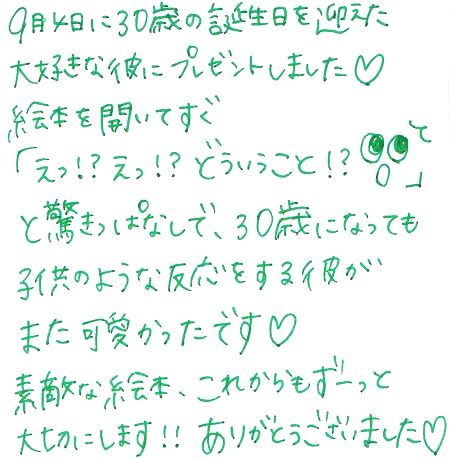 9月4日に30歳の誕生日を迎えた
大好きな彼にプレゼントしました♡
絵本を開いてすぐ
「えっ!?えっ!?どういうこと!?」
と驚きっぱなしで、30歳になっても
子供のような反応をする彼が
また可愛かったです♡
素敵な絵本、これからもずーっと
大切にします!!ありがとうございました♡